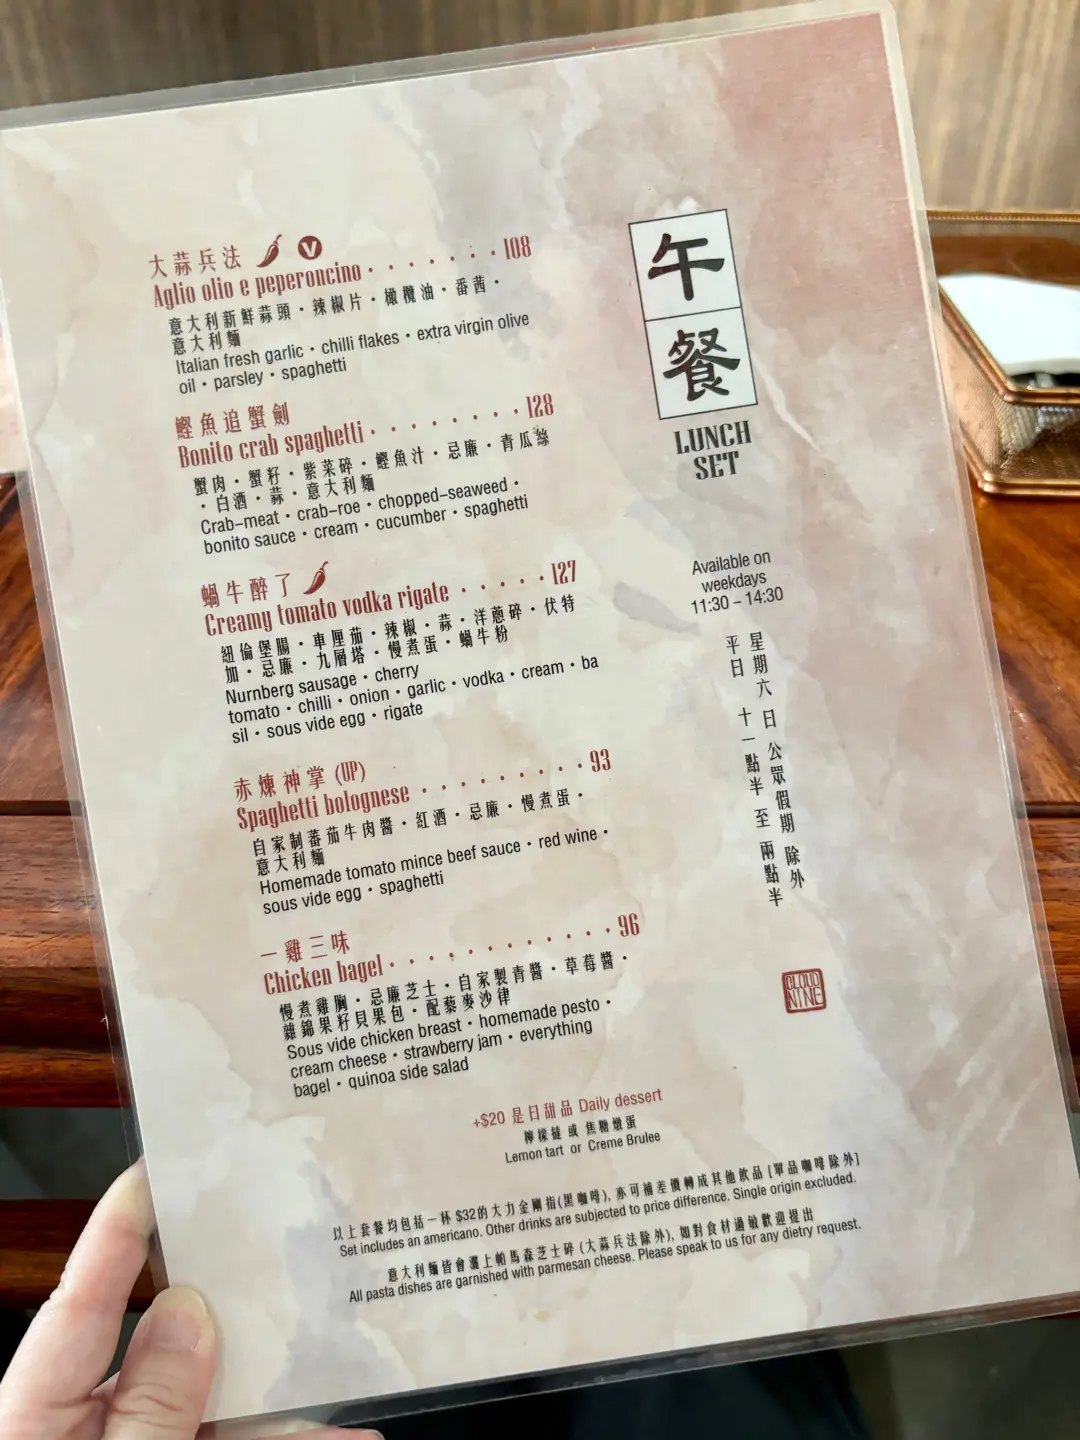 大蒜兵法 V
Aglio olio e peperoncino · · · · · · · 108
意大利新鮮蒜頭・辣椒片・橄欖油・番茜・
意大利麵
Italian fresh garlic • chilli flakes • extra virgin olive
oil • parsley • spaghetti
鰹魚追蟹劍
Bonito crab spaghetti · · · · · · · · 128
蟹肉・蟹籽・紫菜碎・鰹魚汁・忌廉・青瓜絲
・白酒・蒜・意大利麵
Crab-meat • crab-roe • chopped-seaweed •
bonito sauce • cream • cucumber • spaghetti
蝸牛醉了
Creamy tomato vodka rigate · · · · · 127
紐倫堡腸・車厘茄・辣椒・蒜・洋蔥碎・伏特
加・忌廉・九層塔・慢煮蛋・蝸牛粉
Nurnberg sausage • cherry
tomato • chilli • onion • garlic • vodka • cream • ba
sil • sous vide egg • rigate
赤煉神掌 (UP)
Spaghetti bolognese · · · · · · · · · 93
自家制蕃茄牛肉醬・紅酒・忌廉・慢煮蛋・
意大利麵
Homemade tomato mince beef sauce • red wine •
sous vide egg • spaghetti
一雞三味
Chicken bagel · · · · · · · · · · · 96
慢煮雞胸・忌廉芝士・自家製青醬・草莓醬・
雜錦果籽貝果包・配藜麥沙律
Sous vide chicken breast • homemade pesto •
cream cheese • strawberry jam • everything
bagel • quinoa side salad
+$20 是日甜品 Daily dessert
檸檬撻 或 焦糖燉蛋
Lemon tart or Creme Brulee
以上套餐均包括一杯 $32的大力金剛指(黑咖啡), 亦可補差價轉成其他飲品 [單品咖啡除外]
Set includes an americano. Other drinks are subjected to price difference. Single origin excluded.
意大利麵皆會灑上帕馬森芝士碎 (大蒜兵法除外), 如對食材過敏歡迎提出
All pasta dishes are garnished with parmesan cheese. Please speak to us for any dietry request.
午
餐
LUNCH
SET
Available on
weekdays
11:30 – 14:30
星期六 日 公眾假期 除外
平日 十一點半 至 兩點半
CLOUD
NINE